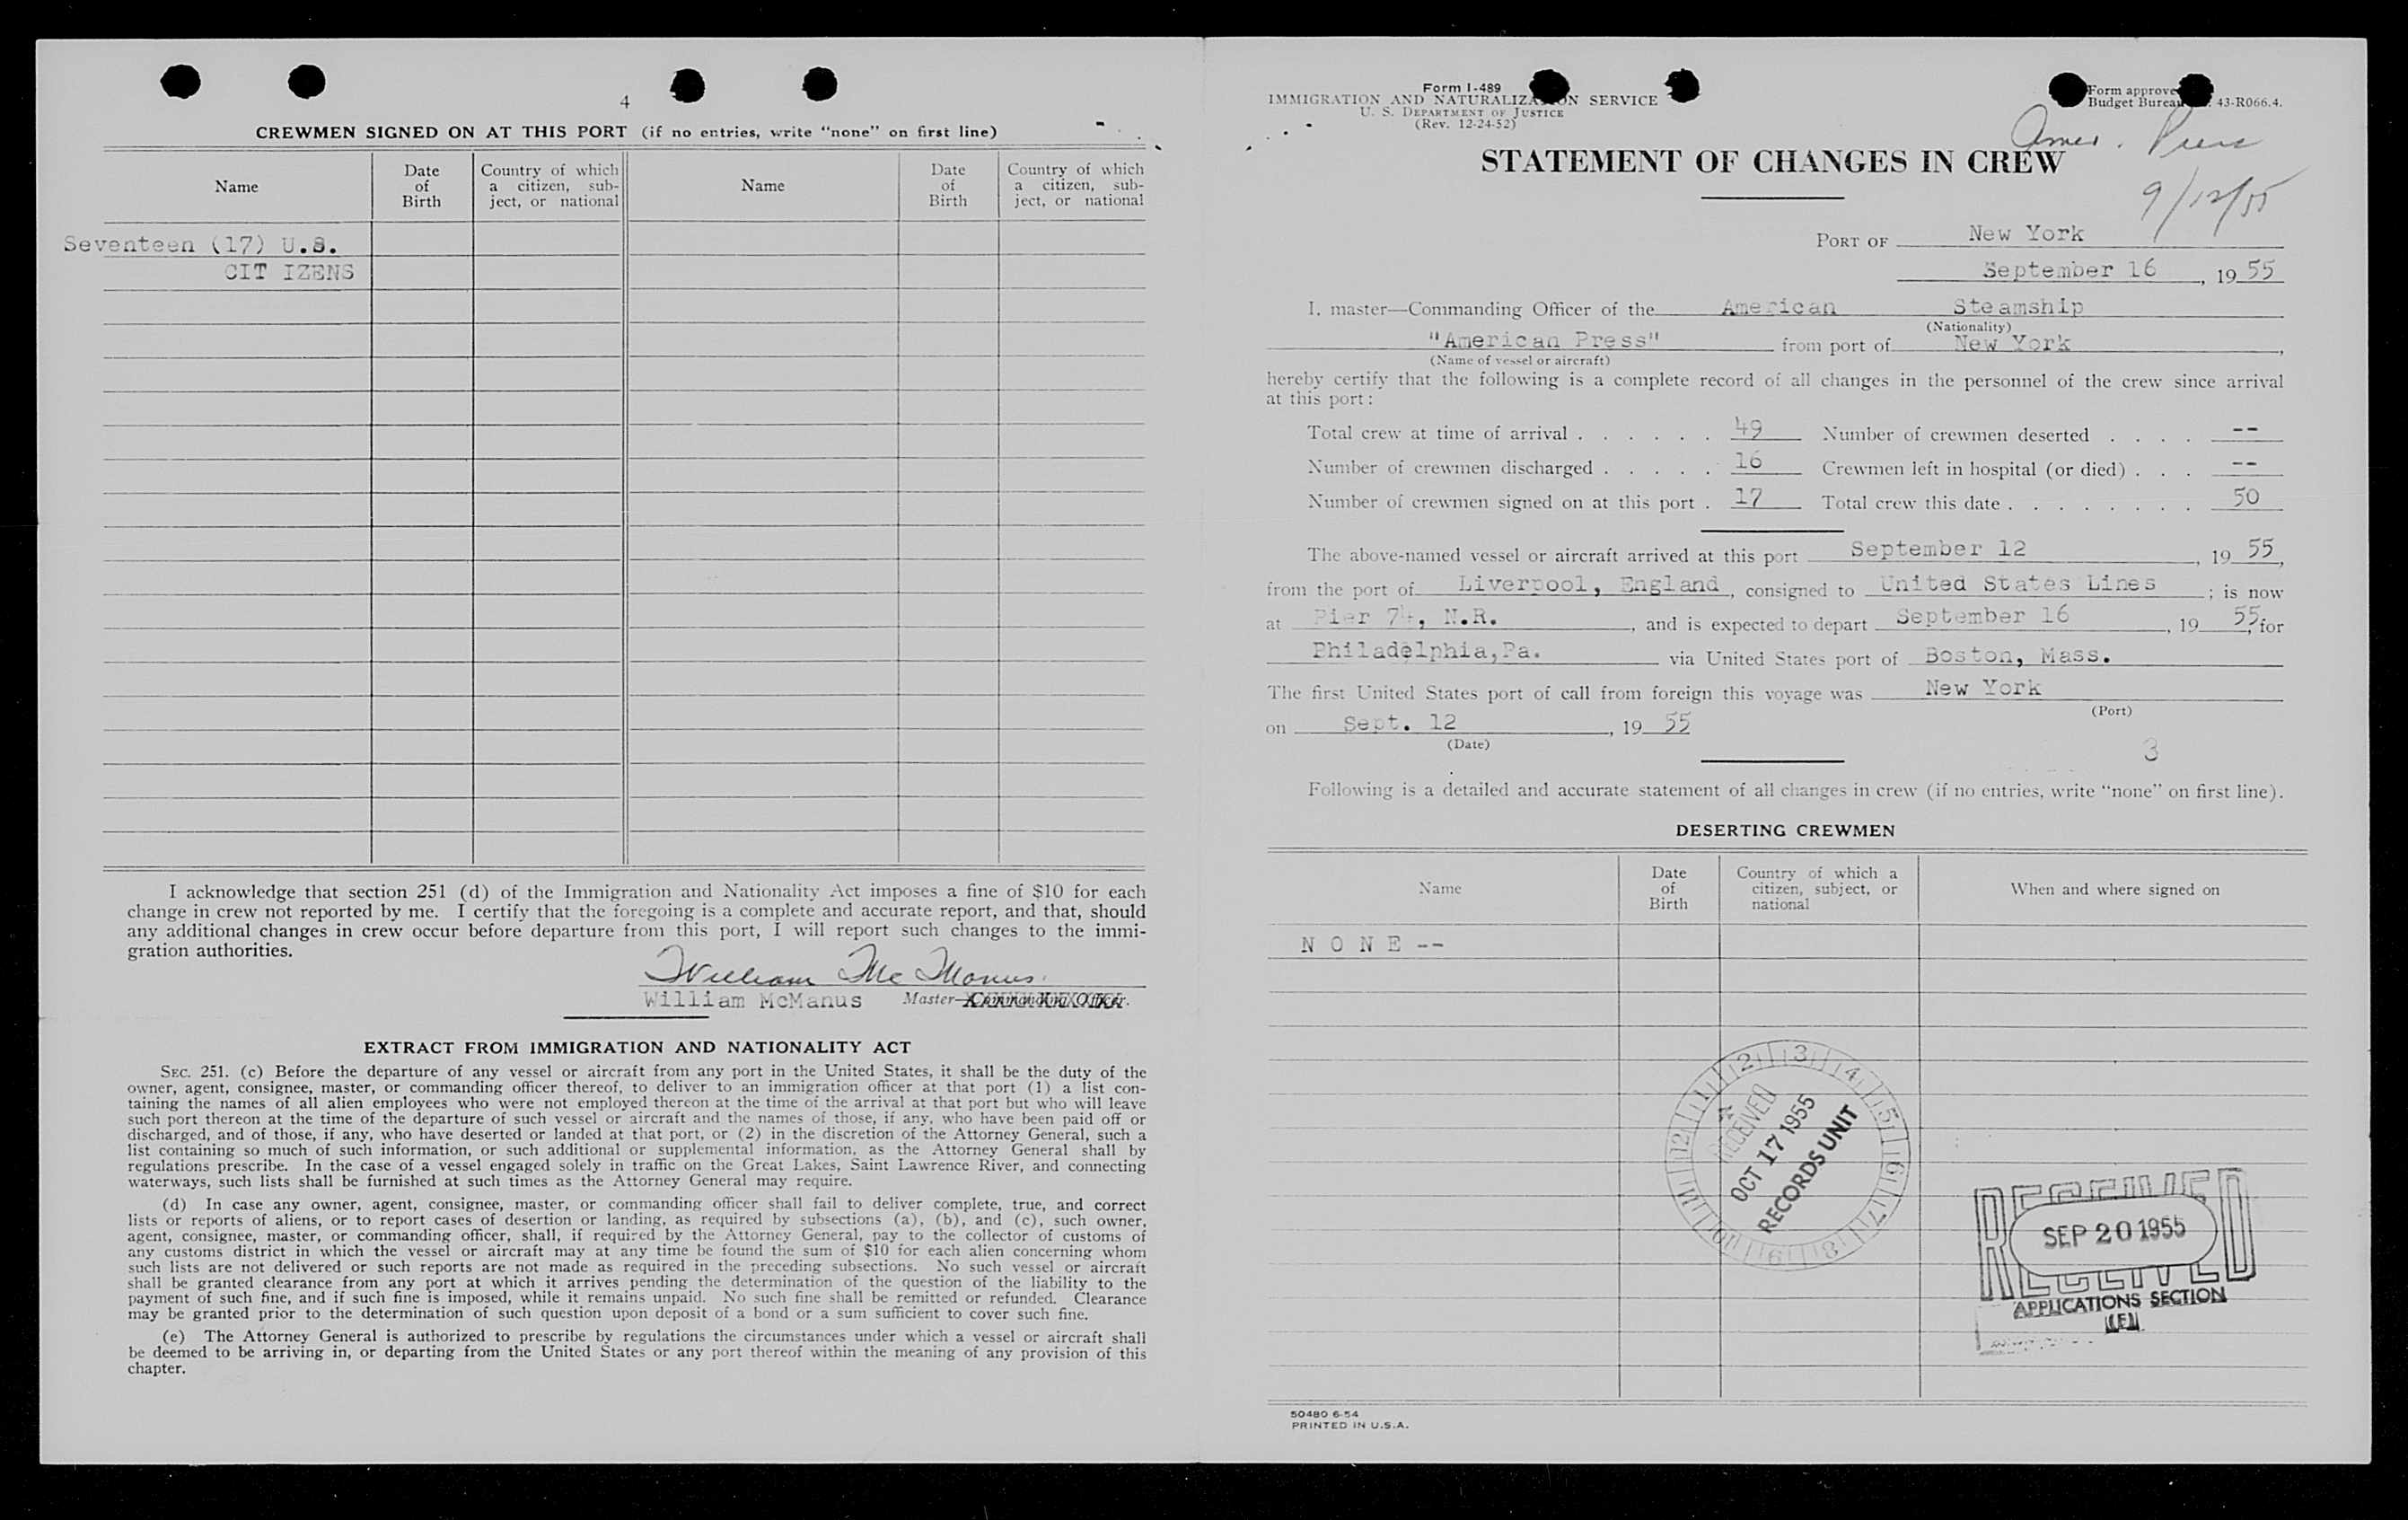 4
CREWMEN SIGNED ON AT THIS PORT (if no entries, write "none" on first line)
Name
Date
of
Birth
Country of which
a citizen, sub-
ject, or national
Name
Date
of
Birth
Country of which
a citizen, sub-
ject, or national
Seventeen (17) U.S.
CIT IZENS
I acknowledge that section 251 (d) of the Immigration and Nationality Act imposes a fine of $10 for each
change in crew not reported by me. I certify that the foregoing is a complete and accurate report, and that, should
any additional changes in crew occur before departure from this port, I will report such changes to the immi-
gration authorities.
William McManus
William McManus Master—Commanding Officer.
EXTRACT FROM IMMIGRATION AND NATIONALITY ACT
SEC. 251. (c) Before the departure of any vessel or aircraft from any port in the United States, it shall be the duty of the
owner, agent, consignee, master, or commanding officer thereof, to deliver to an immigration officer at that port (1) a list con-
taining the names of all alien employees who were not employed thereon at the time of the arrival at that port but who will leave
such port thereon at the time of the departure of such vessel or aircraft and the names of those, if any, who have been paid off or
discharged, and of those, if any, who have deserted or landed at that port, or (2) in the discretion of the Attorney General, such a
list containing so much of such information, or such additional or supplemental information, as the Attorney General shall by
regulations prescribe. In the case of a vessel engaged solely in traffic on the Great Lakes, Saint Lawrence River, and connecting
waterways, such lists shall be furnished at such times as the Attorney General may require.
(d) In case any owner, agent, consignee, master, or commanding officer shall fail to deliver complete, true, and correct
lists or reports of aliens, or to report cases of desertion or landing, as required by subsections (a), (b), and (c), such owner,
agent, consignee, master, or commanding officer, shall, if required by the Attorney General, pay to the collector of customs of
any customs district in which the vessel or aircraft may at any time be found the sum of $10 for each alien concerning whom
such lists are not delivered or such reports are not made as required in the preceding subsections. No such vessel or aircraft
shall be granted clearance from any port at which it arrives pending the determination of the question of the liability to the
payment of such fine, and if such fine is imposed, while it remains unpaid. No such fine shall be remitted or refunded. Clearance
may be granted prior to the determination of such question upon deposit of a bond or a sum sufficient to cover such fine.
(e) The Attorney General is authorized to prescribe by regulations the circumstances under which a vessel or aircraft shall
be deemed to be arriving in, or departing from the United States or any port thereof within the meaning of any provision of this
chapter.
Form I-489
IMMIGRATION AND NATURALIZATION SERVICE
U. S. DEPARTMENT OF JUSTICE
(Rev. 12-24-52)
Form approve
Budget Bureau 43-R066.4.
Amer. Press
STATEMENT OF CHANGES IN CREW
9/12/55
PORT OF New York
September 16, 1955
I, master—Commanding Officer of the American Steamship
(Nationality)
"American Press" from port of New York,
(Name of vessel or aircraft)
hereby certify that the following is a complete record of all changes in the personnel of the crew since arrival
at this port:
Total crew at time of arrival . . . . . . 49 Number of crewmen deserted . . . . --
Number of crewmen discharged . . . . . 16 Crewmen left in hospital (or died) . . . --
Number of crewmen signed on at this port . 17 Total crew this date . . . . . . . . 50
The above-named vessel or aircraft arrived at this port September 12, 1955,
from the port of Liverpool, England, consigned to United States Lines; is now
at Pier 74, N.R., and is expected to depart September 16, 1955, for
Philadelphia,Pa. via United States port of Boston, Mass.
The first United States port of call from foreign this voyage was New York
(Port)
on Sept. 12, 1955
(Date)
3
Following is a detailed and accurate statement of all changes in crew (if no entries, write "none" on first line).
DESERTING CREWMEN
Name
Date
of
Birth
Country of which a
citizen, subject, or
national
When and where signed on
N O N E --
12 1 2 3 4 5 6 7 8 9 10 11
RECEIVED
OCT 17 1955
RECORDS UNIT
RECEIVED
SEP 20 1955
RECEIVED
APPLICATIONS SECTION
50480 6-54
PRINTED IN U.S.A.